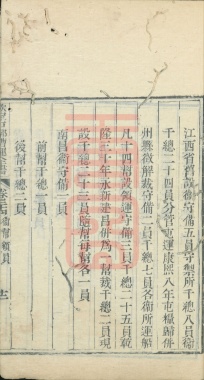 江西省舊設衛守備五員守禦所千總八員衛
千總二十四員分管屯運康熙八年屯糧歸併
州縣徵解裁守備二員千總七員各衛所運船
凡十四幫設領運守備三員千總二十五員乾
隆三十年永新建昌併為一幫裁千總二員現
設千總二十二員隨幫每幫各一員
南昌衛守備一員
前幫千總一員
後幫千總二員
衛幫額員